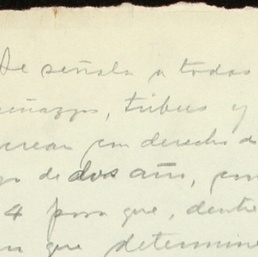 Se señala a todas
, tribus y
crean con derecho de
de dos año,
4 para que, dentro
que determine